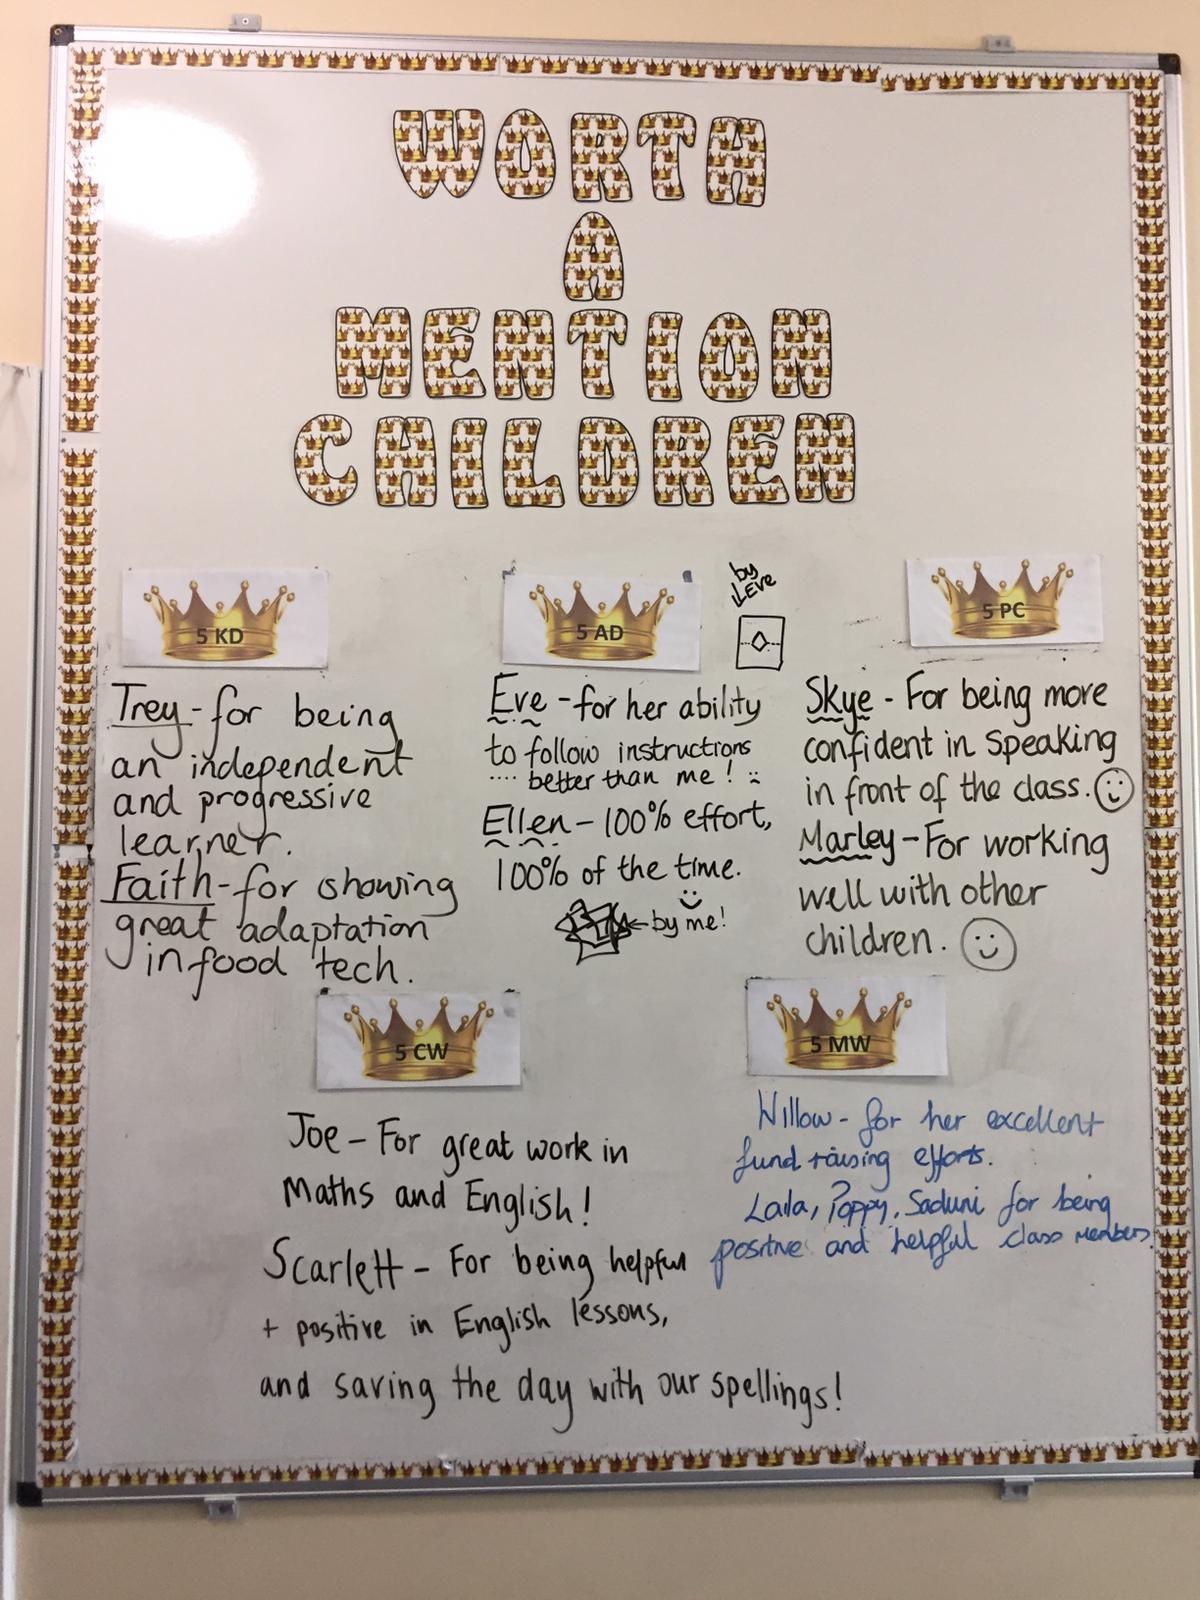 WORTH
A
MENTION
CHILDREN
5 KD
Trey - for being
an independent
and progressive
learner.
Faith - for showing
great adaptation
in food tech.
5 AD
by
Eve
Eve - for her ability
to follow instructions
.... better than me!
Ellen - 100% effort,
100% of the time.
by me!
5 PC
Skye - For being more
confident in speaking
in front of the class.
Marley - For working
well with other
children.
5 CW
Joe - For great work in
Maths and English!
Scarlett - For being helpful
+ positive in English lessons,
and saving the day with our spellings!
5 MW
Willow - for her excellent
fund raising efforts.
Laila, Poppy, Saduni for being
positive and helpful class members.